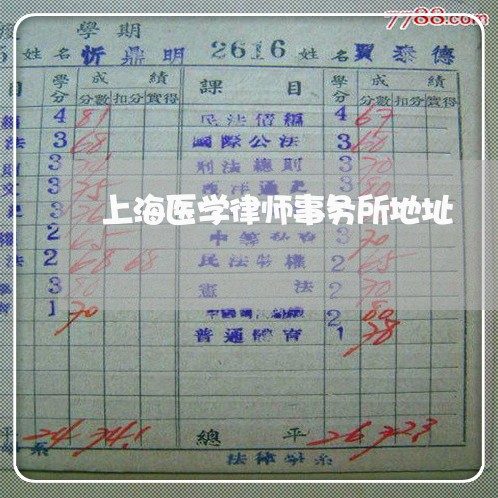 7788.com
學期
姓名 忻鼎明 2616 姓名 賈泰德
目 學分 成績 課目 學分 成績
分數 扣分 實得 分數 扣分 實得
4 81 民法債編 4 67
法 3 68 國際公法 3 60
3 刑法總則 3 70
文 3 75 西洋通史 3 80
上海医学律师事务所地址
2 65 3 70
法 2 68 68 民法物權 2 65
3 80 憲法 2 70
1 70 2 80
普通體育 1 78
平 24 74.1 總平 26 72.3
系 法律學系